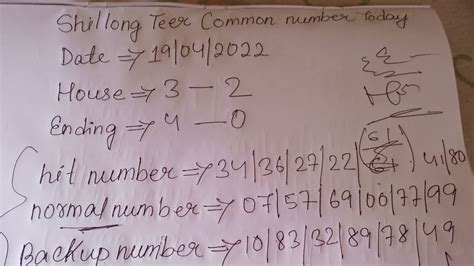 Shillong Teer Common number Today
Date ⇒ 19/04/2022
House ⇒ 3 — 2
Ending ⇒ 4 — 0
hit number ⇒ 34/36/27/22/ 41/80
normal number ⇒ 07/57/69/00/77/99
Backup number ⇒ 10/83/32/89/78/49